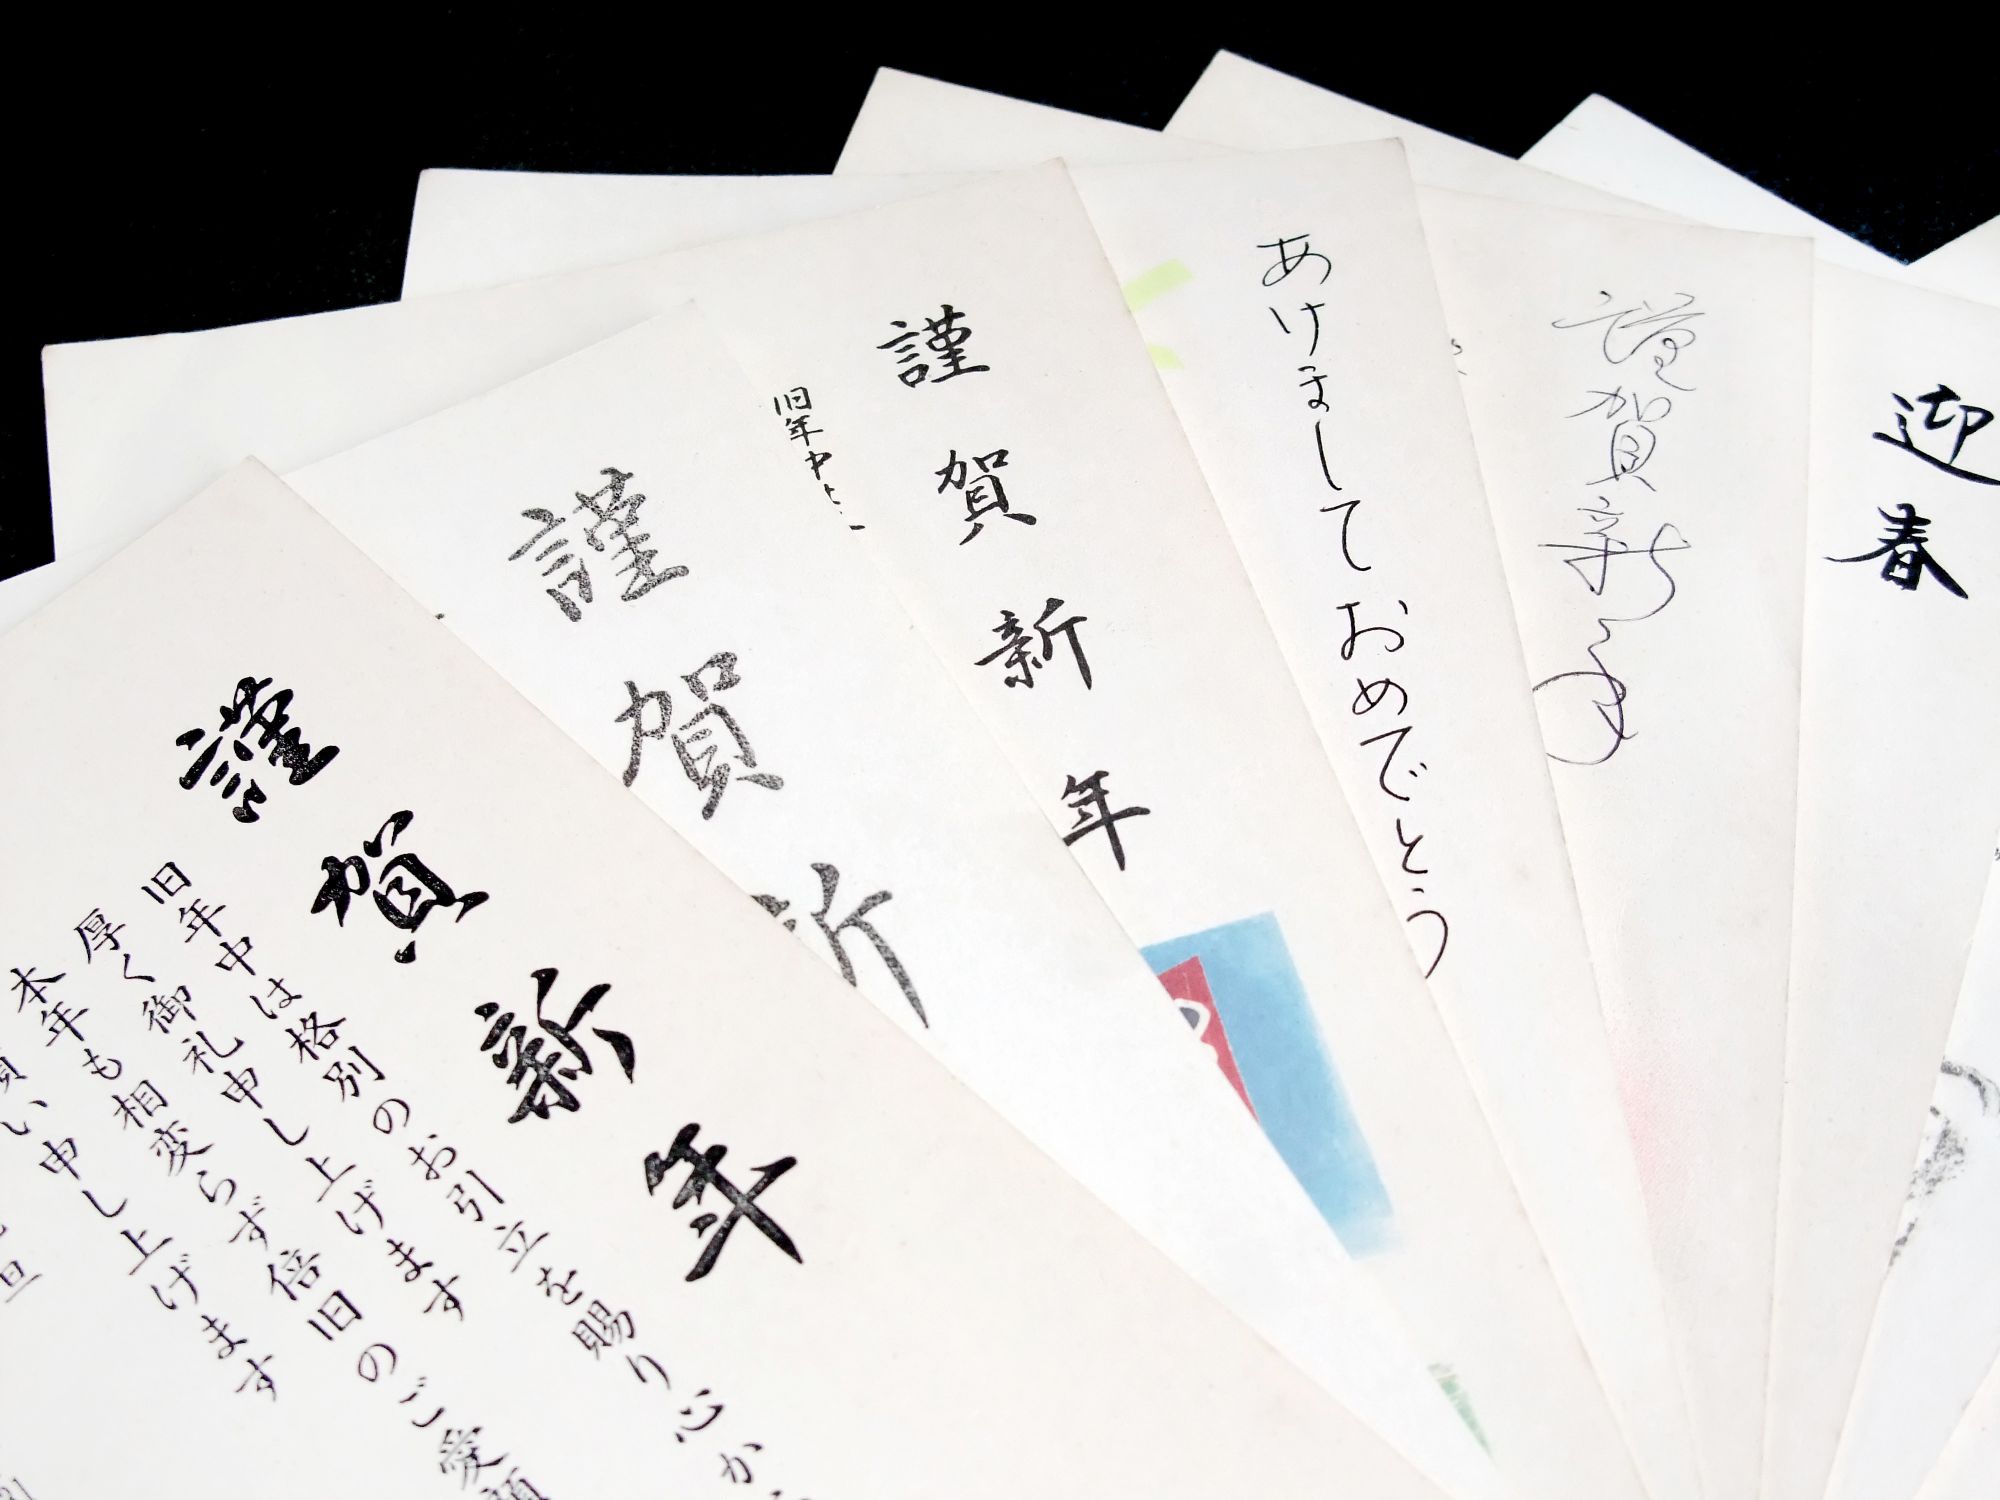 謹賀新年
旧年中は格別のお引立を賜り心か
厚く御礼申し上げます
本年も相変らず倍旧のご愛顧
い申し上げます
旦
謹賀新
旧年中
謹賀新年
あけましておめでとう
謹賀新年
迎春